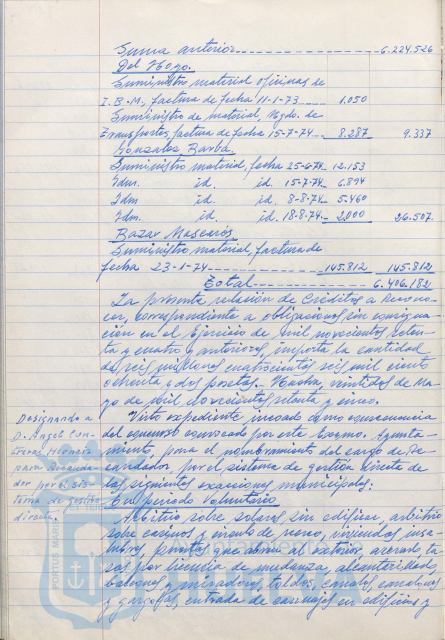 Suma anterior ---- 6.224.526
Del Hoyo.
Suministro material oficinas de
I.B.M, factura de fecha 11-1-73 --- 1.050
Suministro de material, Ngdo. de
Transportes, factura de fecha 15-7-74 -- 8.287 9.337
Gonzalez Barba.
Suministro material, fecha 25-6-74 12.153
Idm. id. id. 15-7-74.. 6.894
Idm id. id. 8-8-74.. 5.460
Idm. id. id. 18-8-74.. 2.000 26.507
Bazar Mascarós
Suministro material, factura de
fecha 23-1-74 ---- 145.812 145.812
Total ---- 6.406.182
La presente relación de Créditos a Recono-
cer, correspondiente a obligaciones sin consigna-
ción en el Ejercicio de mil novecientos seten-
ta y cuatro y anteriores, importa la cantidad
de seis millones cuatrocientos seis mil ciento
ochenta y dos pesetas. Huelva, veintidos de Ma-
yo de mil novecientos setenta y cinco.
Designando a
D. Angel Con-
treras
para Recauda-
dor por el sis-
tema de gestión
directa.
Visto expediente incoado como consecuencia
del concurso convocado por este Excmo. Ayunta-
miento, para el nombramiento del cargo de Re-
caudador, por el sistema de gestión directa de
las siguientes exacciones municipales:
En periodo voluntario
Arbitrio sobre solares sin edificar, arbitrio
sobre casinos y circulo de recreo, viviendas insa-
lubres, puertas que abren al exterior, acerado, ta-
sas por licencia de mudanza, alcantarillado,
balcones y miradores, toldos, canales, canalones
y gargolas, entrada de carruajes en edificios y
PORTUS MARIS